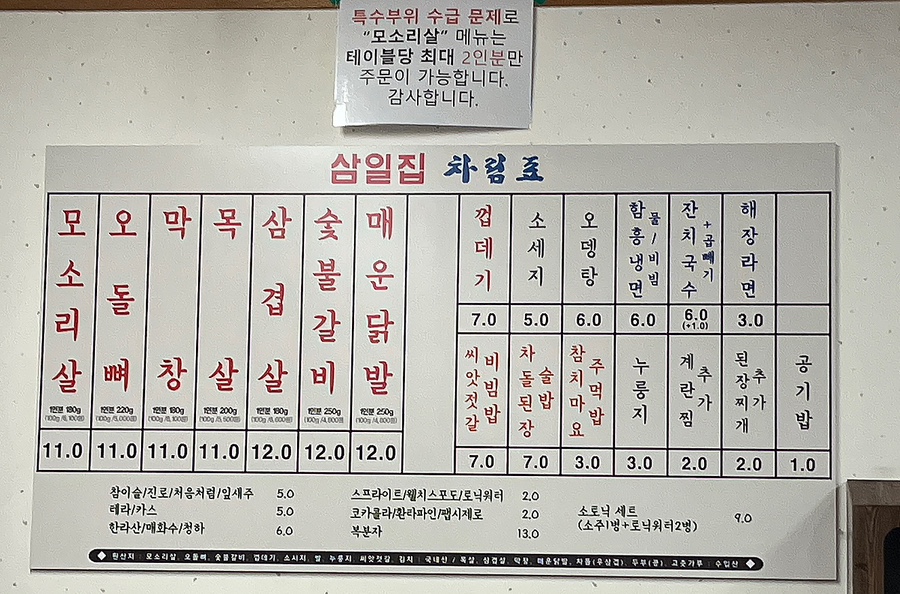 특수부위 수급 문제로
"모소리살" 메뉴는
테이블당 최대 2인분만
주문이 가능합니다.
감사합니다.
삼일집 차림표
모소리살
1인분 180g
(100g /6,100원)
11.0
오돌뼈
1인분 220g
(100g /5,000원)
11.0
막창
1인분 180g
(100g /6,100원)
11.0
목살
1인분 200g
(100g /5,500원)
11.0
삼겹살
1인분 180g
(100g /6,600원)
12.0
숯불갈비
1인분 250g
(100g /4,800원)
12.0
매운닭발
1인분 250g
(100g /4,800원)
12.0
껍데기
7.0
소세지
5.0
오뎅탕
6.0
함흥냉면
물/비빔
6.0
잔치국수
+곱빼기
6.0
(+1.0)
해장라면
3.0
씨앗젓갈
비빔밥
7.0
차돌된장
술밥
7.0
참치마요
주먹밥
3.0
누룽지
3.0
계란찜
추가
2.0
된장찌개
추가
2.0
공기밥
1.0
참이슬/진로/처음처럼/잎새주 5.0
테라/카스 5.0
한라산/매화수/청하 6.0
스프라이트/웰치스포도/토닉워터 2.0
코카콜라/환타파인/펩시제로 2.0
복분자 13.0
소토닉 세트
(소주1병+토닉워터2병) 9.0
원산지 : 모소리살, 오돌뼈, 숯불갈비, 껍데기, 소시지, 쌀, 누룽지, 씨앗젓갈, 김치 : 국내산 / 목살, 삼겹살, 막창, 매운닭발, 차돌(우삼겹), 두부(콩), 고춧가루 : 수입산